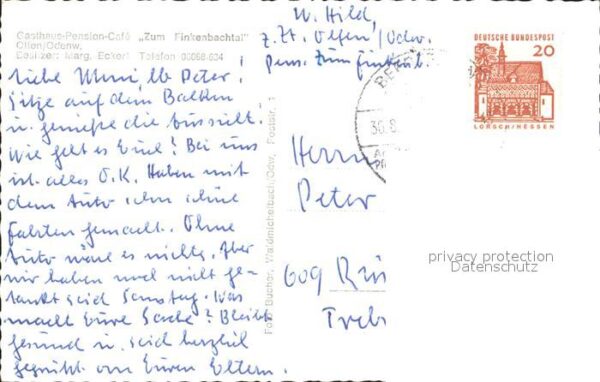 Gasthaus-Pension-Café „Zum Finkenbachtal"
Olfen/Odenw.
Besitzer: Marg. Eckert Telefon 06068/634
Liebe Ulrni, lb Peter!
Sitze auf dem Balkon
u. genieße die Aussicht.
Wie geht es Euch? Bei uns
ist alles O.K. Haben mit
dem Auto schon schöne
Fahrten gemacht. Ohne
Auto wäre es nichts. Aber
wir haben noch nicht ge-
tankt seid Samstag. Was
macht Eure Sache? Bleibt
gesund u. seid herzlich
gegrüßt von Euren Eltern.
Foto Bucher, Waldmichelbach/Odw, Poststr. 1
W. Hild,
z. Zt. Olfen/Odw.
Pens. Zum Finkenb.
30.8
DEUTSCHE BUNDESPOST
20
LORSCH/HESSEN
Herrn
Peter
609 Rüs
Treb
privacy protection
Datenschutz